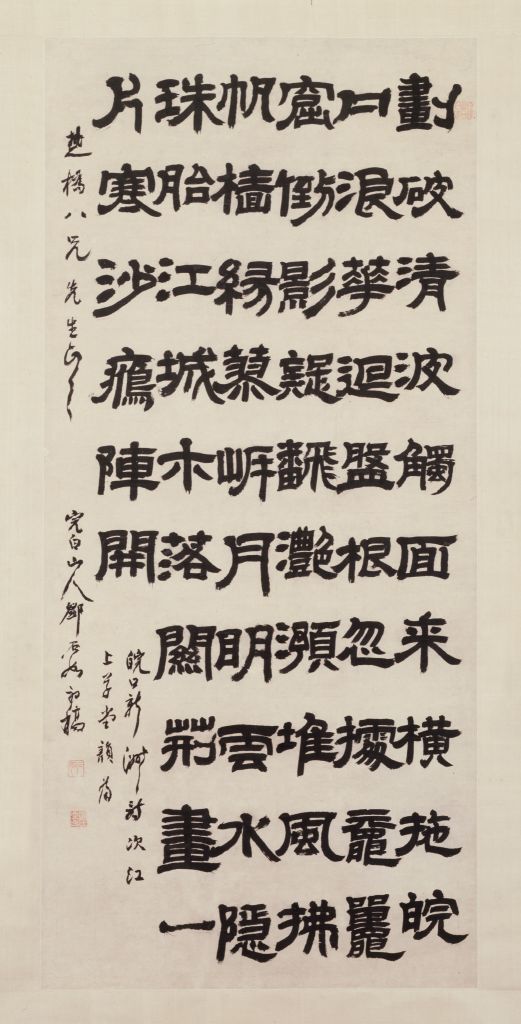 劃破清波觸面来橫拖皖
口浪華迴盤根忽據黿鼉
窟倒影疑飜灔澦堆風拂
帆檣緣蓼岸月明雲水隱
珠胎江城木落關荊畫一
片寒沙鴈陣開
皖口新洲詩次江
上草堂韻為
楚橋八兄先生正之
完白山人鄧石如初稿